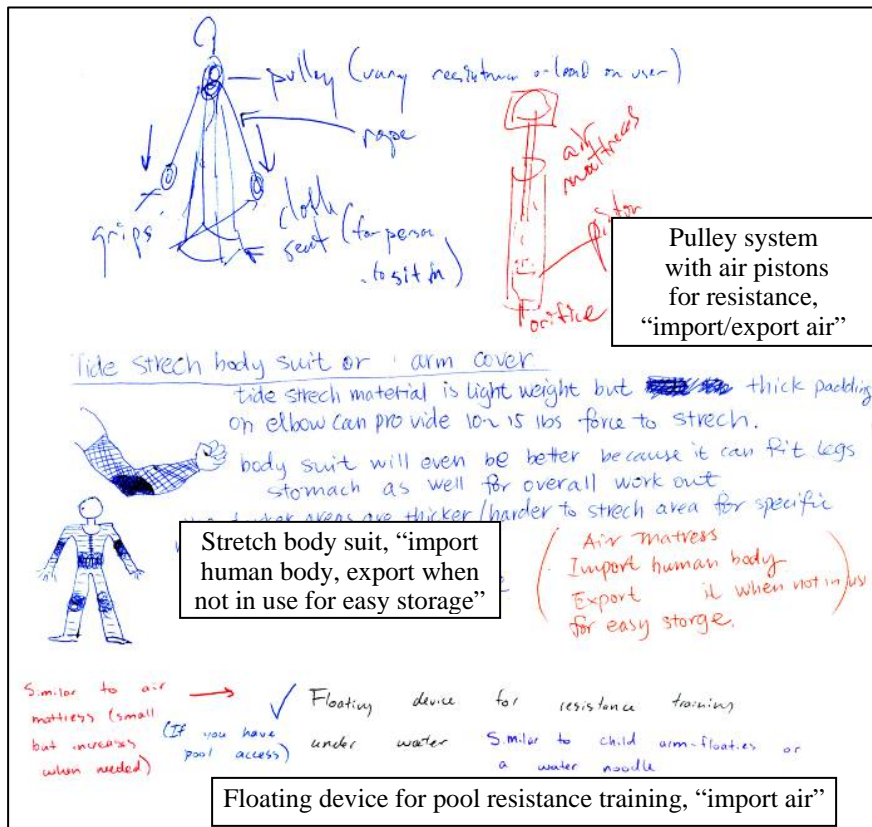 pulley (vary resistance or load on user)
rope
grips
cloth
seat (for person
to sit in)
air
mattress
piston
orifice
Pulley system
with air pistons
for resistance,
“import/export air”
Tide strech body suit or arm cover
tide strech material is light weight but thick padding
on elbow can provide 10~15 lbs force to strech.
body suit will even be better because it can fit legs
stomach as well for overall work out
areas are thicker/harder to strech area for specific
Stretch body suit, “import
human body, export when
not in use for easy storage”
Air matress
Import human body
Export it when not in us
for easy storge.
Similar to air
mattress (small
but increases
when needed)
(If you have
pool access)
✓ Floating device for resistance training
under water
Similar to child arm-floaties or
a water noodle
Floating device for pool resistance training, “import air”